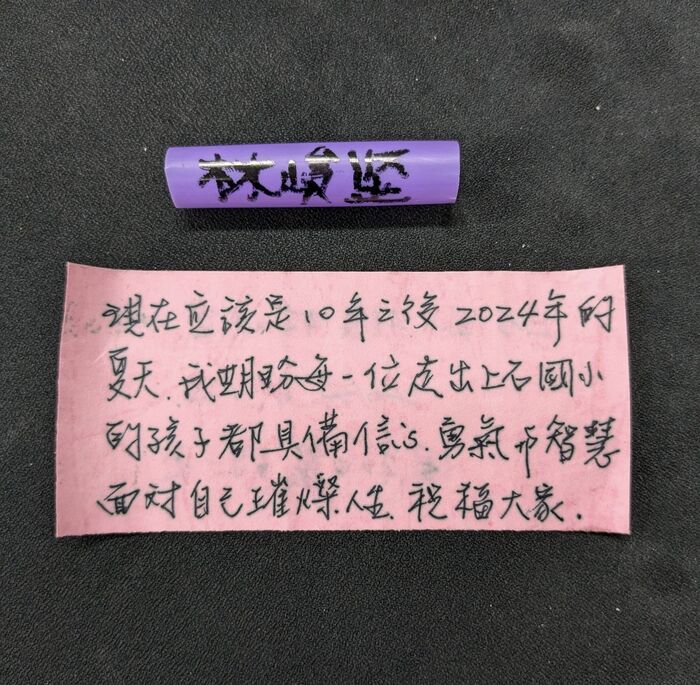 林峻堅
現在应該是10年之後2024年的
夏天.我期盼每一位走出上石國小
的孩子都具備信心.勇氣与智慧
面对自己璀燦人生.祝福大家.